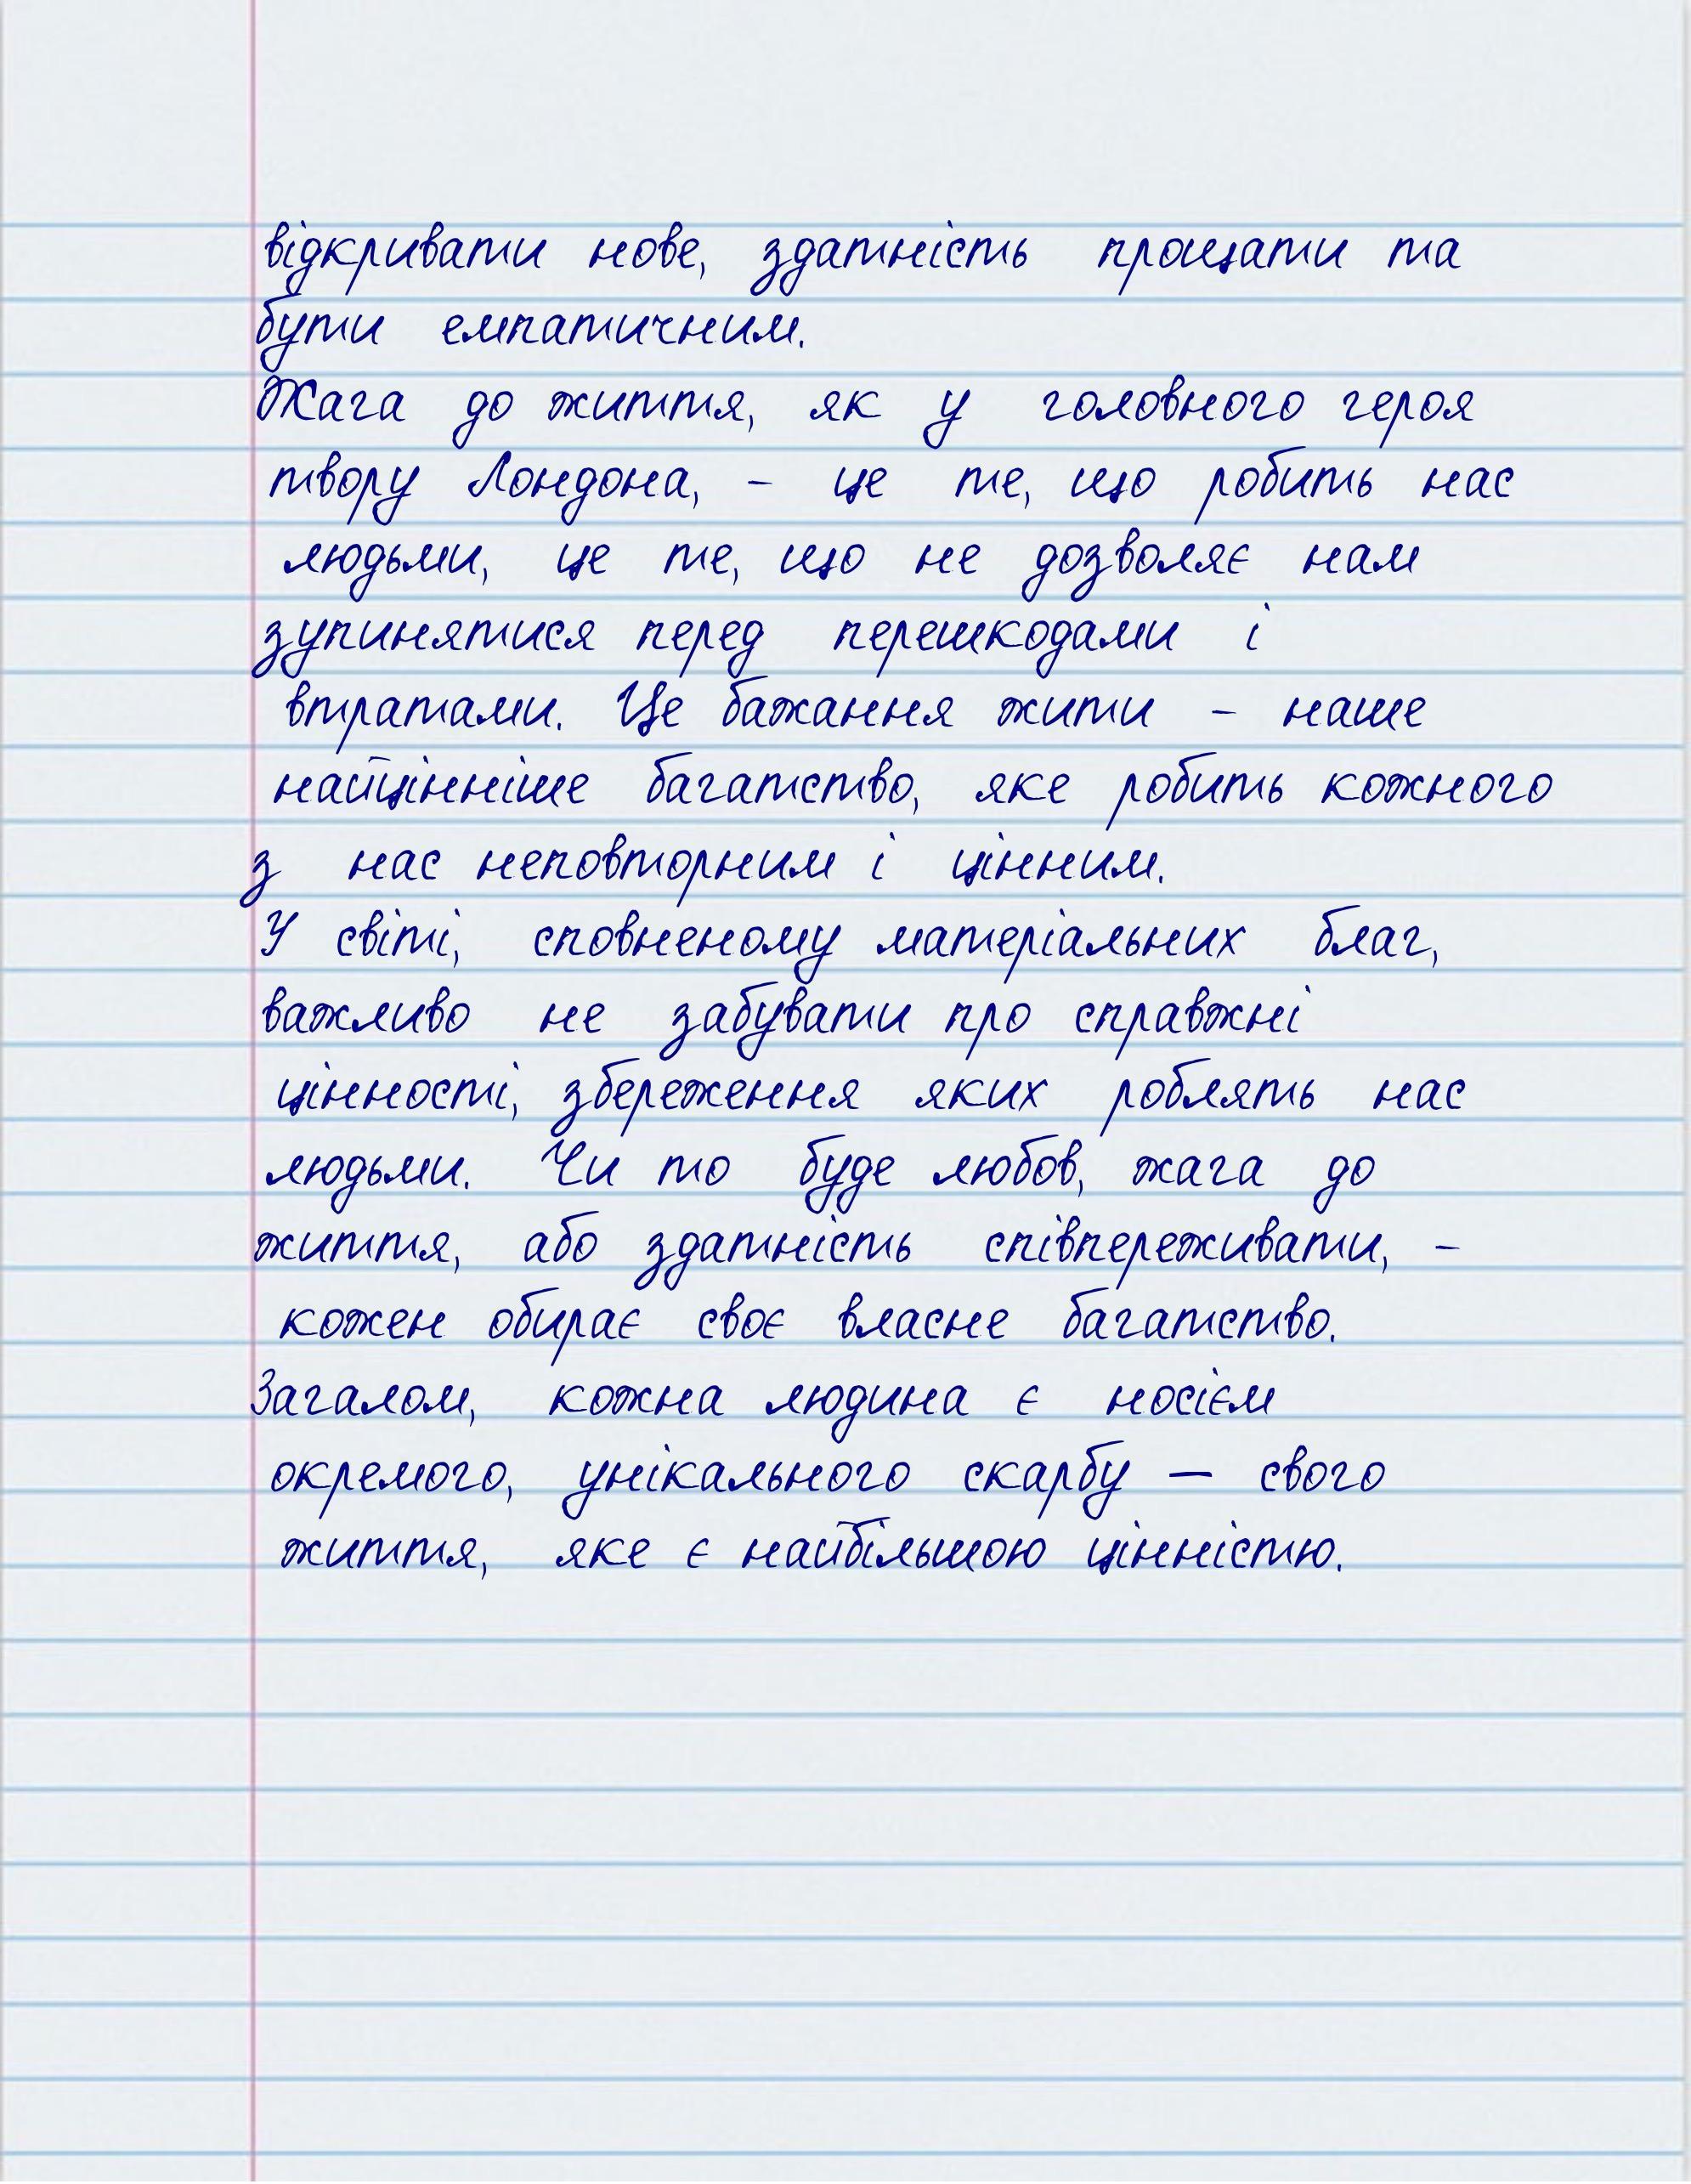 відкривати нове, здатність прощати та
бути емпатичним.
Жага до життя, як у головного героя
твору Лондона, - це те, що робить нас
людьми, це те, що не дозволяє нам
зупинятися перед перешкодами і
втратами. Це бажання жити - наше
найцінніше багатство, яке робить кожного
з нас неповторним і цінним.
У світі, сповненому матеріальних благ,
важливо не забувати про справжні
цінності, збереження яких роблять нас
людьми. Чи то буде любов, жага до
життя, або здатність співпереживати, -
кожен обирає своє власне багатство.
Загалом, кожна людина є носієм
окремого, унікального скарбу — свого
життя, яке є найбільшою цінністю.